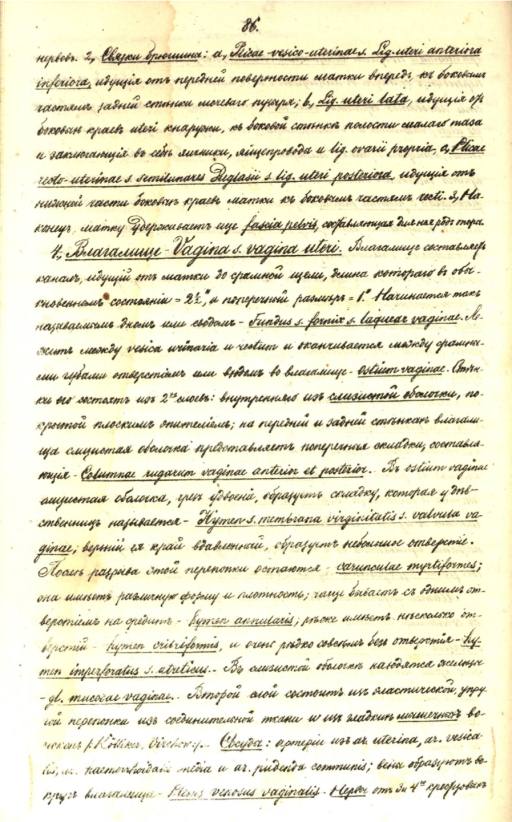 86.
нервовъ. 2, Связки брюшины: a, Plicae vesico-uterinae s. Lig. uteri anteriora
inferiora, идущія отъ передней поверхности матки впередъ, къ боковымъ
частямъ задней стѣнки мочеваго пузыря; b, Lig. uteri lata, идущія отъ
боковыхъ краевъ uteri кнаружи, къ боковой стѣнкѣ полости малаго таза
и заключающія въ себѣ яичники, яйцепровода и lig. ovarii propria, c, Plicae
recto-uterinae s. semilunares Duglasii s. lig. uteri posteriora, идущія отъ
нижней части боковыхъ краевъ матки къ боковымъ частямъ recti. 3, На-
конецъ, матку удерживаетъ еще fascia pelvis, составляющая для нея
4, Влагалище - Vagina s. vagina uteri. Влагалище составляетъ
каналъ, идущій отъ матки до срамной щели, длина котораго въ обы-
кновенномъ состояніи = 2½" и поперечный размѣръ = 1". Начинается такъ
называемымъ дномъ или сводомъ - Fundus s. fornix s. laquear vaginae. Ле-
житъ между vesica urinaria и rectum и оканчивается между срамны-
ми губами отверстіемъ или входомъ во влагалище - ostium vaginae. Стѣн-
ки его состоятъ изъ 2хъ слоевъ: внутренняго изъ слизистой оболочки, по-
крытой плоскимъ эпителіемъ; на передней и задней стѣнкахъ влагали-
ща слизистая оболочка представляетъ поперечныя складки, составля-
ющія - Columnae rugarum vaginae anterior et posterior. Въ ostium vaginae
слизистая оболочка, чрезъ удвоеніе, образуетъ складку, которая у дѣв-
ственницъ называется - Hymen s. membrana virginitatis s. valvula va-
ginae; верхній ея край вдавленный, образуетъ небольшое отверстіе.
Послѣ разрыва этой перепонки остаются - carunculae myrtiformes;
она имѣетъ различную форму и плотность; чаще бываетъ съ однимъ от-
верстіемъ на срединѣ - hymen annularis; рѣже имѣетъ нѣсколько от-
верстій - hymen cribriformis, и очень рѣдко совсѣмъ безъ отверстія - hy-
men imperforatus s. atreticus. Въ слизистой оболочкѣ находятся железы
- gl. mucosae vaginae. Второй слой состоитъ изъ эластической, упру-
гой перепонки изъ соединительной ткани и изъ гладкихъ мышечныхъ во-
локонъ р. Kölliker, Virchow. Сосуды: артеріи изъ ar. uterina, ar. vesica-
lis, ar. haemorrhoidalis media и ar. pudenda communis; вены образуютъ во-
кругъ влагалища - Plexus venosus vaginalis. Нервы отъ 3и 4хъ крестцовыхъ